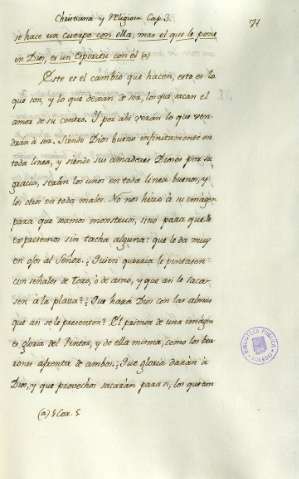 Christiana y Religiosa Cap. 3.
71
se hace un cuerpo con ella; mas el que se pone
en Dios, es un espiritu con él (a)
Este es el cambio que hacen, esto es lo
que son, y lo que dexan de ser, los que sacan el
amor de su centro. Y por ahi verán lo que ven-
drán à ser. Siendo Dios bueno infinitamente en
toda linea, y siendo sus amadores Dioses por su
gracia, serán los unos en toda linea buenos, y
los otros en todo malos. No nos hizo à su imagen
para que seamos monstruos, sino para que le
copiasemos sin tacha alguna: que le da muy
en ojos al Señor. ¿Quien querria le pintasen
con señales de Toro, ò de asno, y que asi le sacar-
sen à la plaza? ¿Que hará Dios con las almas
que asi se le presenten? El primor de una imagen
es gloria del Pintor, y de ella misma; como los bor-
rones afrenta de ambos. ¿Que gloria darán à
Dios, y que provechos sacarán para si, los que en
(a) 1 Cor. 6
BIBLIOTECA PUBLICA